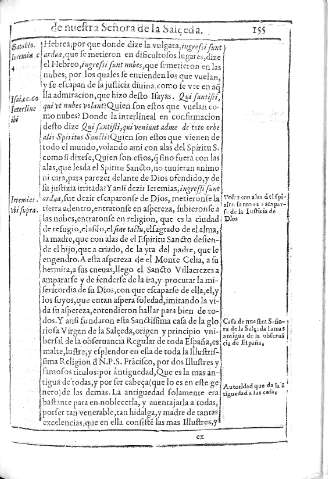 de nuestra Señora de la Salçeda. 155
Hebrea, por que donde dize la vulgata, ingressi sunt
ardua, que se metieron en dificultosos lugares, dize
el Hebreo, ingressi sunt nubes, que se metieron en las
nubes, por los quales se entienden los que vuelan,
y se escapan de la justicia divina como se vee en aq̃
lla admiracion, que hizo desto Isayas. Qui sunt isti,
qui vt nubes volant? Quien son estos que vuelan co
mo nubes? Donde la interlineal en confirmacion
desto dize Qui sunt isti, qui veniunt
alis Spiritus Sancti? Quien son estos que vienen de
todo el mundo, volando ami con alas del Spiritu S.
como si dixese, Quien son estos, q̃ sino fuera con las
alas, que les da el Spiritu Sancto, no tuvieran animo
ni cara, para parezer delante de Dios ofendido, y de
su justicia irritada? Y ansi dezir Jeremias, ingressi sunt
ardua, fue dezir escaparonse de Dios, metieronse la
tierra adentro, entraronse en aspereza, subieronse a
las nubes, entraronse en religion, que es la ciudad
de refugio, el asilo, el el sagrado, el alma,
la madre, que con alas de el Espiritu Sancto defien-
de el hijo, que a criado, de la yra del padre, que le
engendro. A esta aspereza del Monte Celia, a su
hermita, a sus cuevas, llego el Sancto Villacrezes a
ampararse y defenderse de la ira, y procurar la mi-
sericordia de su Dios, con que escaparse de ella, el, y
los suyos, que entan aspera soledad, imitando la vi-
da su aspereza, entendieron hallar para bien de to-
dos. Y ansi fundaron esta Sanctissima casa de la glo
riosa Virgen de la Salçeda, origen y principio vni-
bersal de la observancia Regular de toda España, es
malte, lustre, y esplendor en ella de toda la Illustrissi
ma Religion d̃ N. P. S. Frãcisco, por dos Illustres y
famosos titulos: por antiguedad, Que es la mas an
tigua de todas, y por ser cabeça (que lo es en este ge
nero) de las demas. La antiguedad solamente era
bastante para en noblecerla, y aventajarla a todas,
por ser tan venerable, tan hidalga, y madre de tantas
excelencias, que en ella consiste las mas Illustres, y
ex
Ieremiæ c
4
Isaiæ. c. 60
Interlinea
ibi
Ieremias
vbi supra.
de la Justicia de
Dios
Casa de nuestra Seño
ra de la Salçeda la mas
antigua de la observan
cia de España,
Autoridad que da la ã
tiguedad a las casas